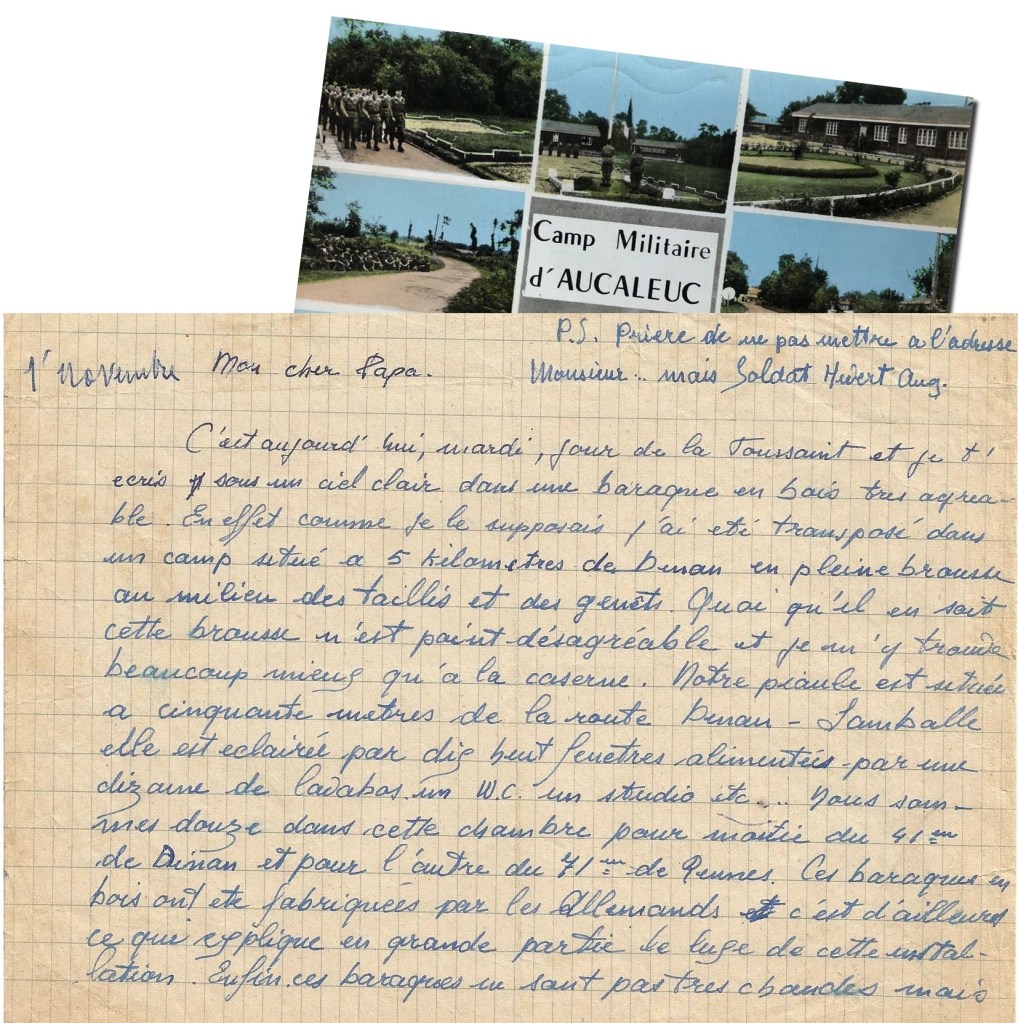 Camp Militaire
d'AUCALEUC
P.S. Prière de ne pas mettre a l'adresse
Monsieur.. mais Soldat Hivert Aug.
1er Novembre Mon cher Papa.
C'est aujourd'hui, mardi, jour de la Toussaint et je t'
ecris sous un ciel clair dans une baraque en bois tres agrea-
ble. En effet comme je le supposais j'ai eté transposé dans
un camp situé a 5 kilometres de Dinan en pleine brousse
au milieu des taillis et des genêts. Quoi qu'il en soit
cette brousse n'est point désagréable et je m'y trouve
beaucoup mieux qu'à la caserne. Notre piaule est située
a cinquante metres de la route Dinan - Lamballe
elle est eclairée par dix huit fenetres alimentées par une
dizaine de lavabos un W.C. un studio etc... Nous som-
mes douze dans cette chambre pour moitié du 41em
de Dinan et pour l'autre du 71em de Rennes. Ces baraques en
bois ont ete fabriquées par les Allemands et c'est d'ailleurs
ce que explique en grande partie le luxe de cette instal-
lation. Enfin ces baraques ne sont pas tres chaudes mais